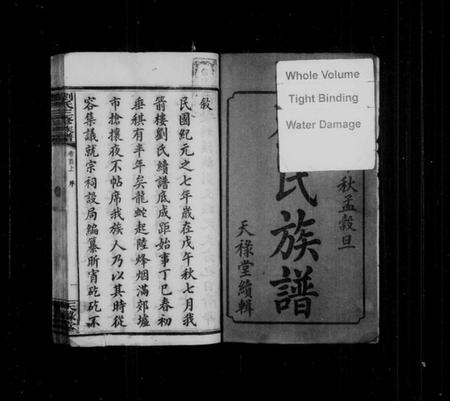 Whole Volume
Tight Binding
Water Damage
秋孟穀旦
氏族譜
天祿堂續輯
敘
民國紀元之七年歲在戊午秋七月我
箭樓劉氏續譜底成距始事丁巳春初
垂稘有半年矣龍蛇起陸烽烟滿郊墟
市搶攘夜不帖席我族人乃以其時從
容集議就宗祠設局編纂昕宵矻矻不
卷首上
序